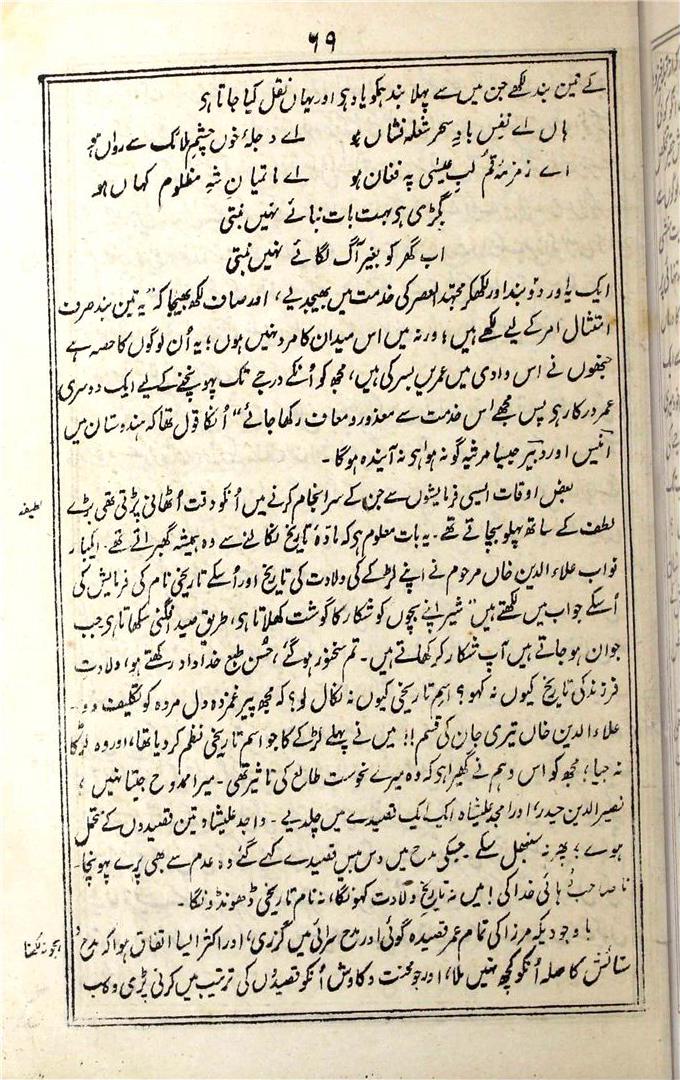 ۶۹
کے تین بند لکھے جن میں سے پہلا بند ہمکو یاد ہی اور یہاں نقل کیا جاتا ہی
ہاں اے نفسِ بادِ سحر شعلہ فشاں ہو اے دجلۂ خوں چشمِ ملائک سے رواں ہو
اے زمزمۂ قُم لبِ عیسیٰ پہ فغاں ہو اے ماتمیانِ شہِ مظلوم کہاں ہو
بگڑی ہی بہت بات بنائے نہیں بنتی
اب گھر کو بغیر آگ لگائے نہیں بنتی
ایک یہ اور دو بند اور لکھکر مجتہد العصر کی خدمت میں بھیجدیے، اور صاف لکھ بھیجا کہ "یہ تین بند صرف
امتثال امر کے لیے لکھے ہیں، ورنہ میں اس میدان کا مرد نہیں ہوں؛ یہ اُن لوگوں کا حصہ ہے
جنھوں نے اس وادی میں عمریں بسر کی ہیں، مجھ کو اُنکے درجے تک پہونچنے کے لیے ایک دوسری
عمر درکار ہی پس مجھے اس خدمت سے معذور و معاف رکھا جائے" اُنکا قول تھا کہ ہندوستان میں
انیس اور دبیر جیسا مرثیہ گو نہ ہوا ہی نہ آیندہ ہوگا۔
بعض اوقات ایسی فرمایشوں سے جن کے سرانجام کرنے میں اُنکو دقت اُٹھانی پڑتی تھی بڑے
لطیفہ
لطف کے ساتھ پہلو بچاتے تھے۔ یہ بات معلوم ہی کہ مادۂ تاریخ نکالنے سے وہ ہمیشہ گھبراتے تھے۔ ایکبار
نواب علاء الدین خاں مرحوم نے اپنے لڑکے کی ولادت کی تاریخ اور اُسکے تاریخی نام کی فرمایش کی
اُسکے جواب میں لکھتے ہیں "شیر اپنے بچوں کو شکار کا گوشت کھلاتا ہی، طریق صید افگنی سکھاتا ہی جب
جوان ہو جاتے ہیں آپ شکار کر کھاتے ہیں۔ تم سخنور ہو گئے، حُسنِ طبع خداداد رکھتے ہو، ولادت
فرزند کی تاریخ کیوں نہ کہو؟ اسم تاریخی کیوں نہ نکال لو؟ کہ مجھ پیر غمزدہ دل مردہ کو تکلیف دو۔
علاء الدین خاں تیری جان کی قسم!! میں نے پہلے لڑکے کا جو اسم تاریخی نظم کر دیا تھا، اور وہ لڑکا
نہ جیا؛ مجھ کو اس وہم نے گھیرا ہی کہ وہ میرے نحوست طالع کی تاثیر تھی۔ میرا ممدوح جیتا نہیں؛
نصیر الدین حیدر، اور امجد علیشاہ ایک ایک قصیدے میں چلدیے۔ واجد علیشاہ تین قصیدوں کے متحمل
ہوے؛ پھر نہ سنبھل سکے۔ جسکی مدح میں دس بیس قصیدے کہے گئے وہ عدم سے بھی پرے پہونچا۔
نا صاحب! دُہائی خدا کی! میں نہ تاریخ ولادت کہونگا، نہ نام تاریخی ڈھونڈونگا۔
باوجودیکہ مرزا کی تمام عمر قصیدہ گوئی اور مدح سرائی میں گزری، اور اکثر ایسا اتفاق ہوا کہ مدح و
ہجو نہ لکھنا
ستائش کا صلہ اُنکو کچھ نہیں ملا، اور جو محنت و کاوش اُنکو قصیدوں کی ترتیب میں کرنی پڑی وہ سب